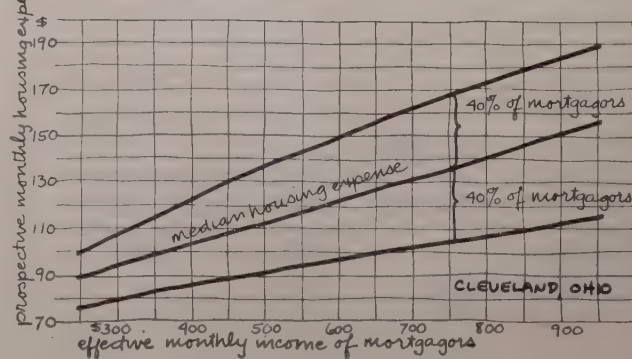 prospective monthly housing expe
$
190
170
150
130
110
90
70
40% of mortgagors
median housing expense
40% of mortgagors
CLEVELAND, OHIO
$300 400 500 600 700 800 900
effective monthly income of mortgagors